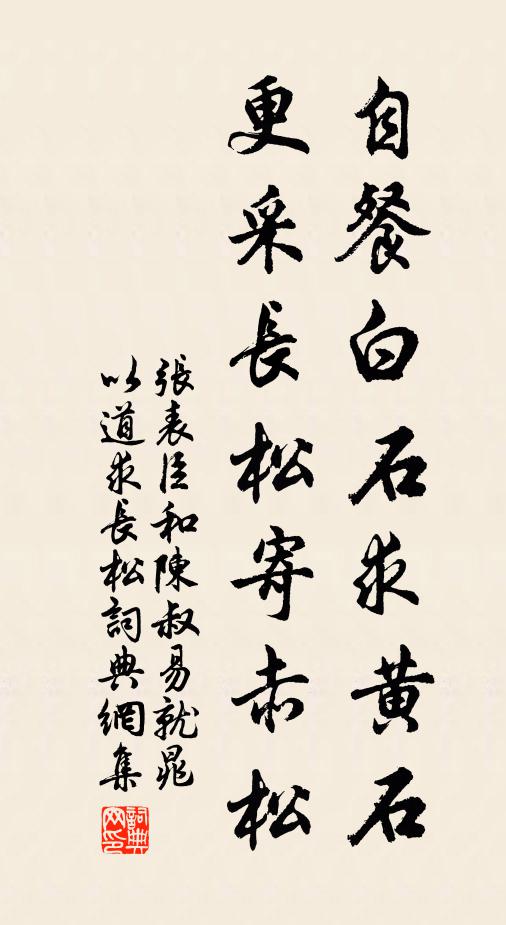 自餐白石求黄石
更采長松寄赤松
張表臣和陳叔易就晁
以道求長松詞典網集
詞典网印